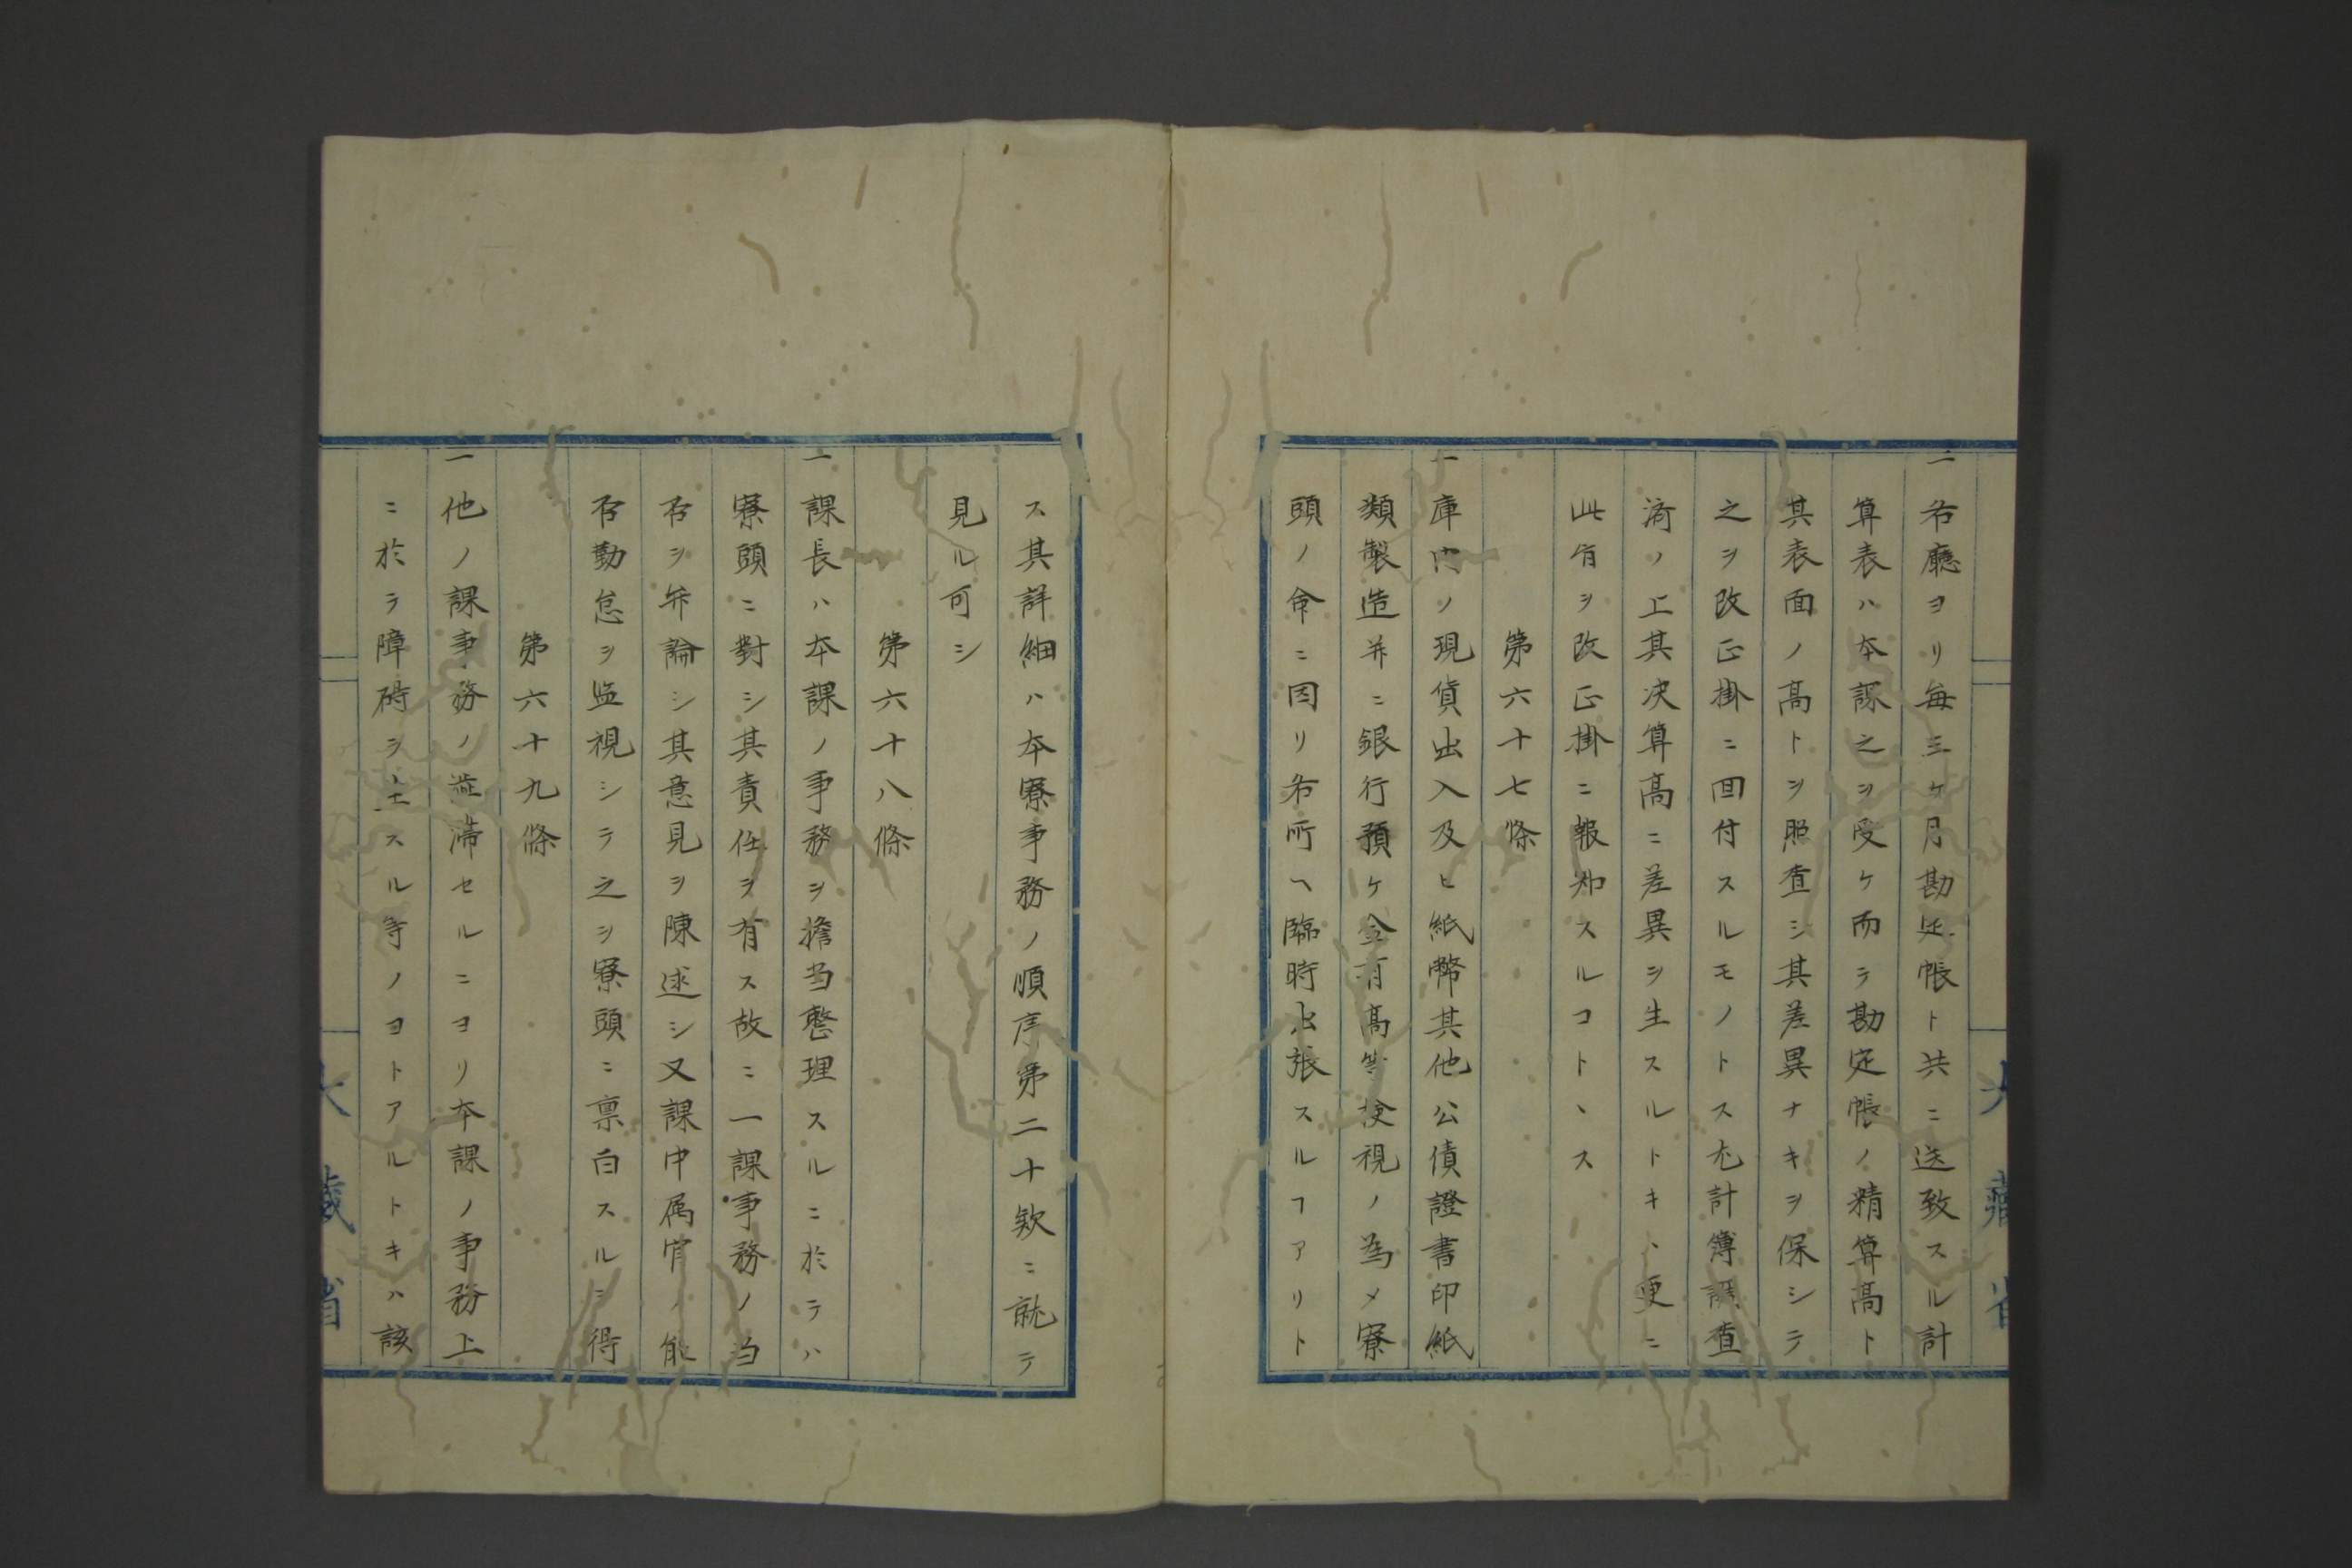 一各廳ヨリ毎三ケ月勘定帳ト共ニ送致スル計
算表ハ本課之ヲ受ケ而テ勘定帳ノ精算高ト
其表面ノ高トヲ照査シ其差異ナキヲ保シテ
之ヲ改正掛ニ回付スルモノトス尤計簿調査
済ノ上其决算高ニ差異ヲ生スルトキ、更ニ
此旨ヲ改正掛ニ報知スルコト、ス
第六十七條
一庫内ノ現貨出入及ヒ紙幣其他公債證書印紙
類製造并ニ銀行預ケ金有高等検視ノ為メ寮
頭ノ命ニ因リ各所ヘ臨時出張スルヿアリト
ス其詳細ハ本寮事務ノ順序第二十欵ニ就テ
見ル可シ
第六十八條
一課長ハ本課ノ事務ヲ擔当整理スルニ於テハ
寮頭ニ對シ其責任ヲ有ス故ニ一課事務ノ当
否ヲ弁論シ其意見ヲ陳述シ又課中属官ノ能
否勤怠ヲ監視シテ之ヲ寮頭ニ禀白スルヲ得
第六十九條
一他ノ課事務ノ澁滞セルニヨリ本課ノ事務上
ニ於テ障碍ヲ生スル等ノヿトアルトキハ該
大藏省